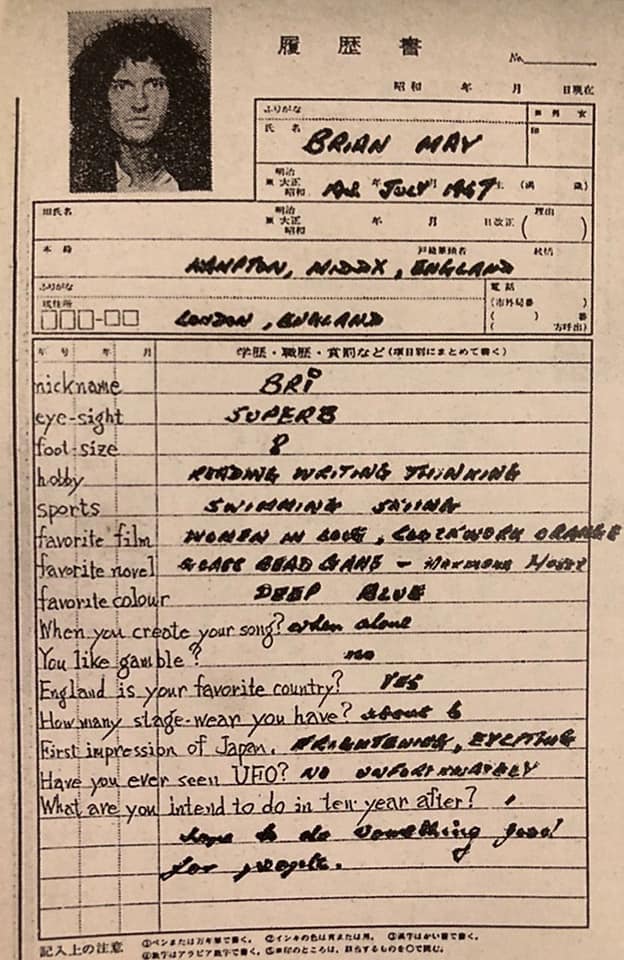 履歴書
No.
昭和 年 月 日現在
ふりがな
氏名 BRIAN MAY
印
※ 男 女
明治
※ 大正
昭和
19th 年 JULY 月 1947 生 (満 歳)
旧氏名
明治
※ 大正
昭和
年 月 日改正
理由
( )
本籍 HAMPTON, MIDDX, ENGLAND
戸籍筆頭者 続柄
ふりがな
現住所 LONDON, ENGLAND
電話
(市外局番 )
( ) 番
( 方呼出)
年号 年 月 学歴・職歴・賞罰など(項目別にまとめて書く)
nickname BRI
eye-sight SUPERB
foot-size 8
hobby READING WRITING THINKING
sports SWIMMING SKIING
favorite film WOMEN IN LOVE, CLOCKWORK ORANGE
favorite novel GLASS BEAD GAME - HERMANN HESSE
favorite colour DEEP BLUE
When you create your song? when alone
You like gamble? no
England is your favorite country? YES
How many stage-wear you have? about 6
First impression of Japan. FRIGHTENING, EXCITING
Have you ever seen UFO? NO UNFORTUNATELY
What are you intend to do in ten year after? I
hope to do something good
for people.
記入上の注意 ①ペンまたは万年筆で書く。 ②インキの色は青または黒。 ③漢字はかい書で書く。
④数字はアラビア数字で書く。 ⑤※印のところは、該当するものを○で囲む。